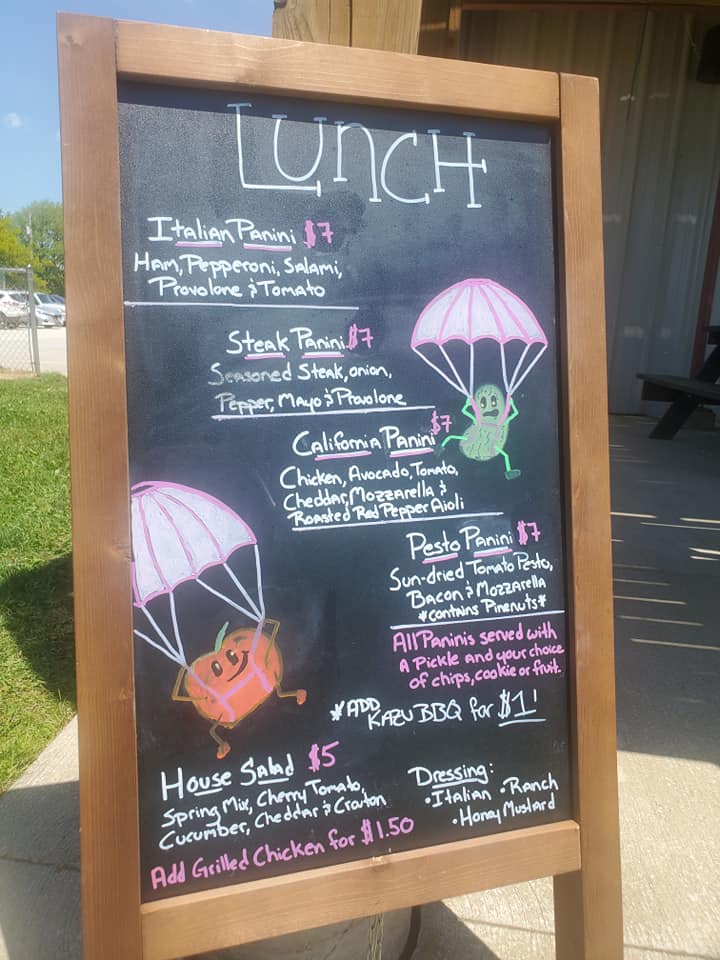 LUNCH
Italian Panini $7
Ham, Pepperoni, Salami,
Provolone & Tomato
Steak Panini $7
Seasoned Steak, onion,
Pepper, Mayo & Provolone
California Panini $7
Chicken, Avocado, Tomato,
Cheddar, Mozzarella &
Roasted Red Pepper Aioli
Pesto Panini $7
Sun-dried Tomato Pesto,
Bacon & Mozzarella
*contains Pinenuts*
All Paninis served with
a Pickle and your choice
of chips, cookie or fruit.
*ADD
KAZU BBQ for $1!
House Salad $5
Spring Mix, Cherry Tomato,
Cucumber, Cheddar & Crouton
Add Grilled Chicken for $1.50
Dressing:
•Italian •Ranch
•Honey Mustard